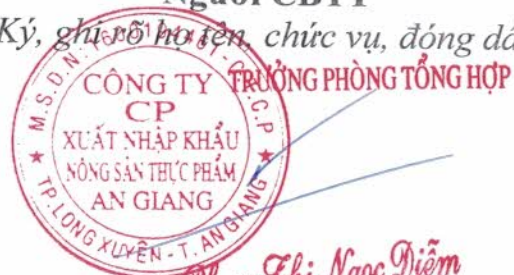 Người CBTT
Ký, ghi rõ họ tên, chức vụ, đóng dấ
TRƯỞNG PHÒNG TỔNG HỢP
M.S.D.N:
C.P
CÔNG TY
CP
XUẤT NHẬP KHẨU
NÔNG SẢN THỰC PHẨM
AN GIANG
★ TP.LONG XUYÊN - T. AN GIANG ★
Thị Ngọc Diễm